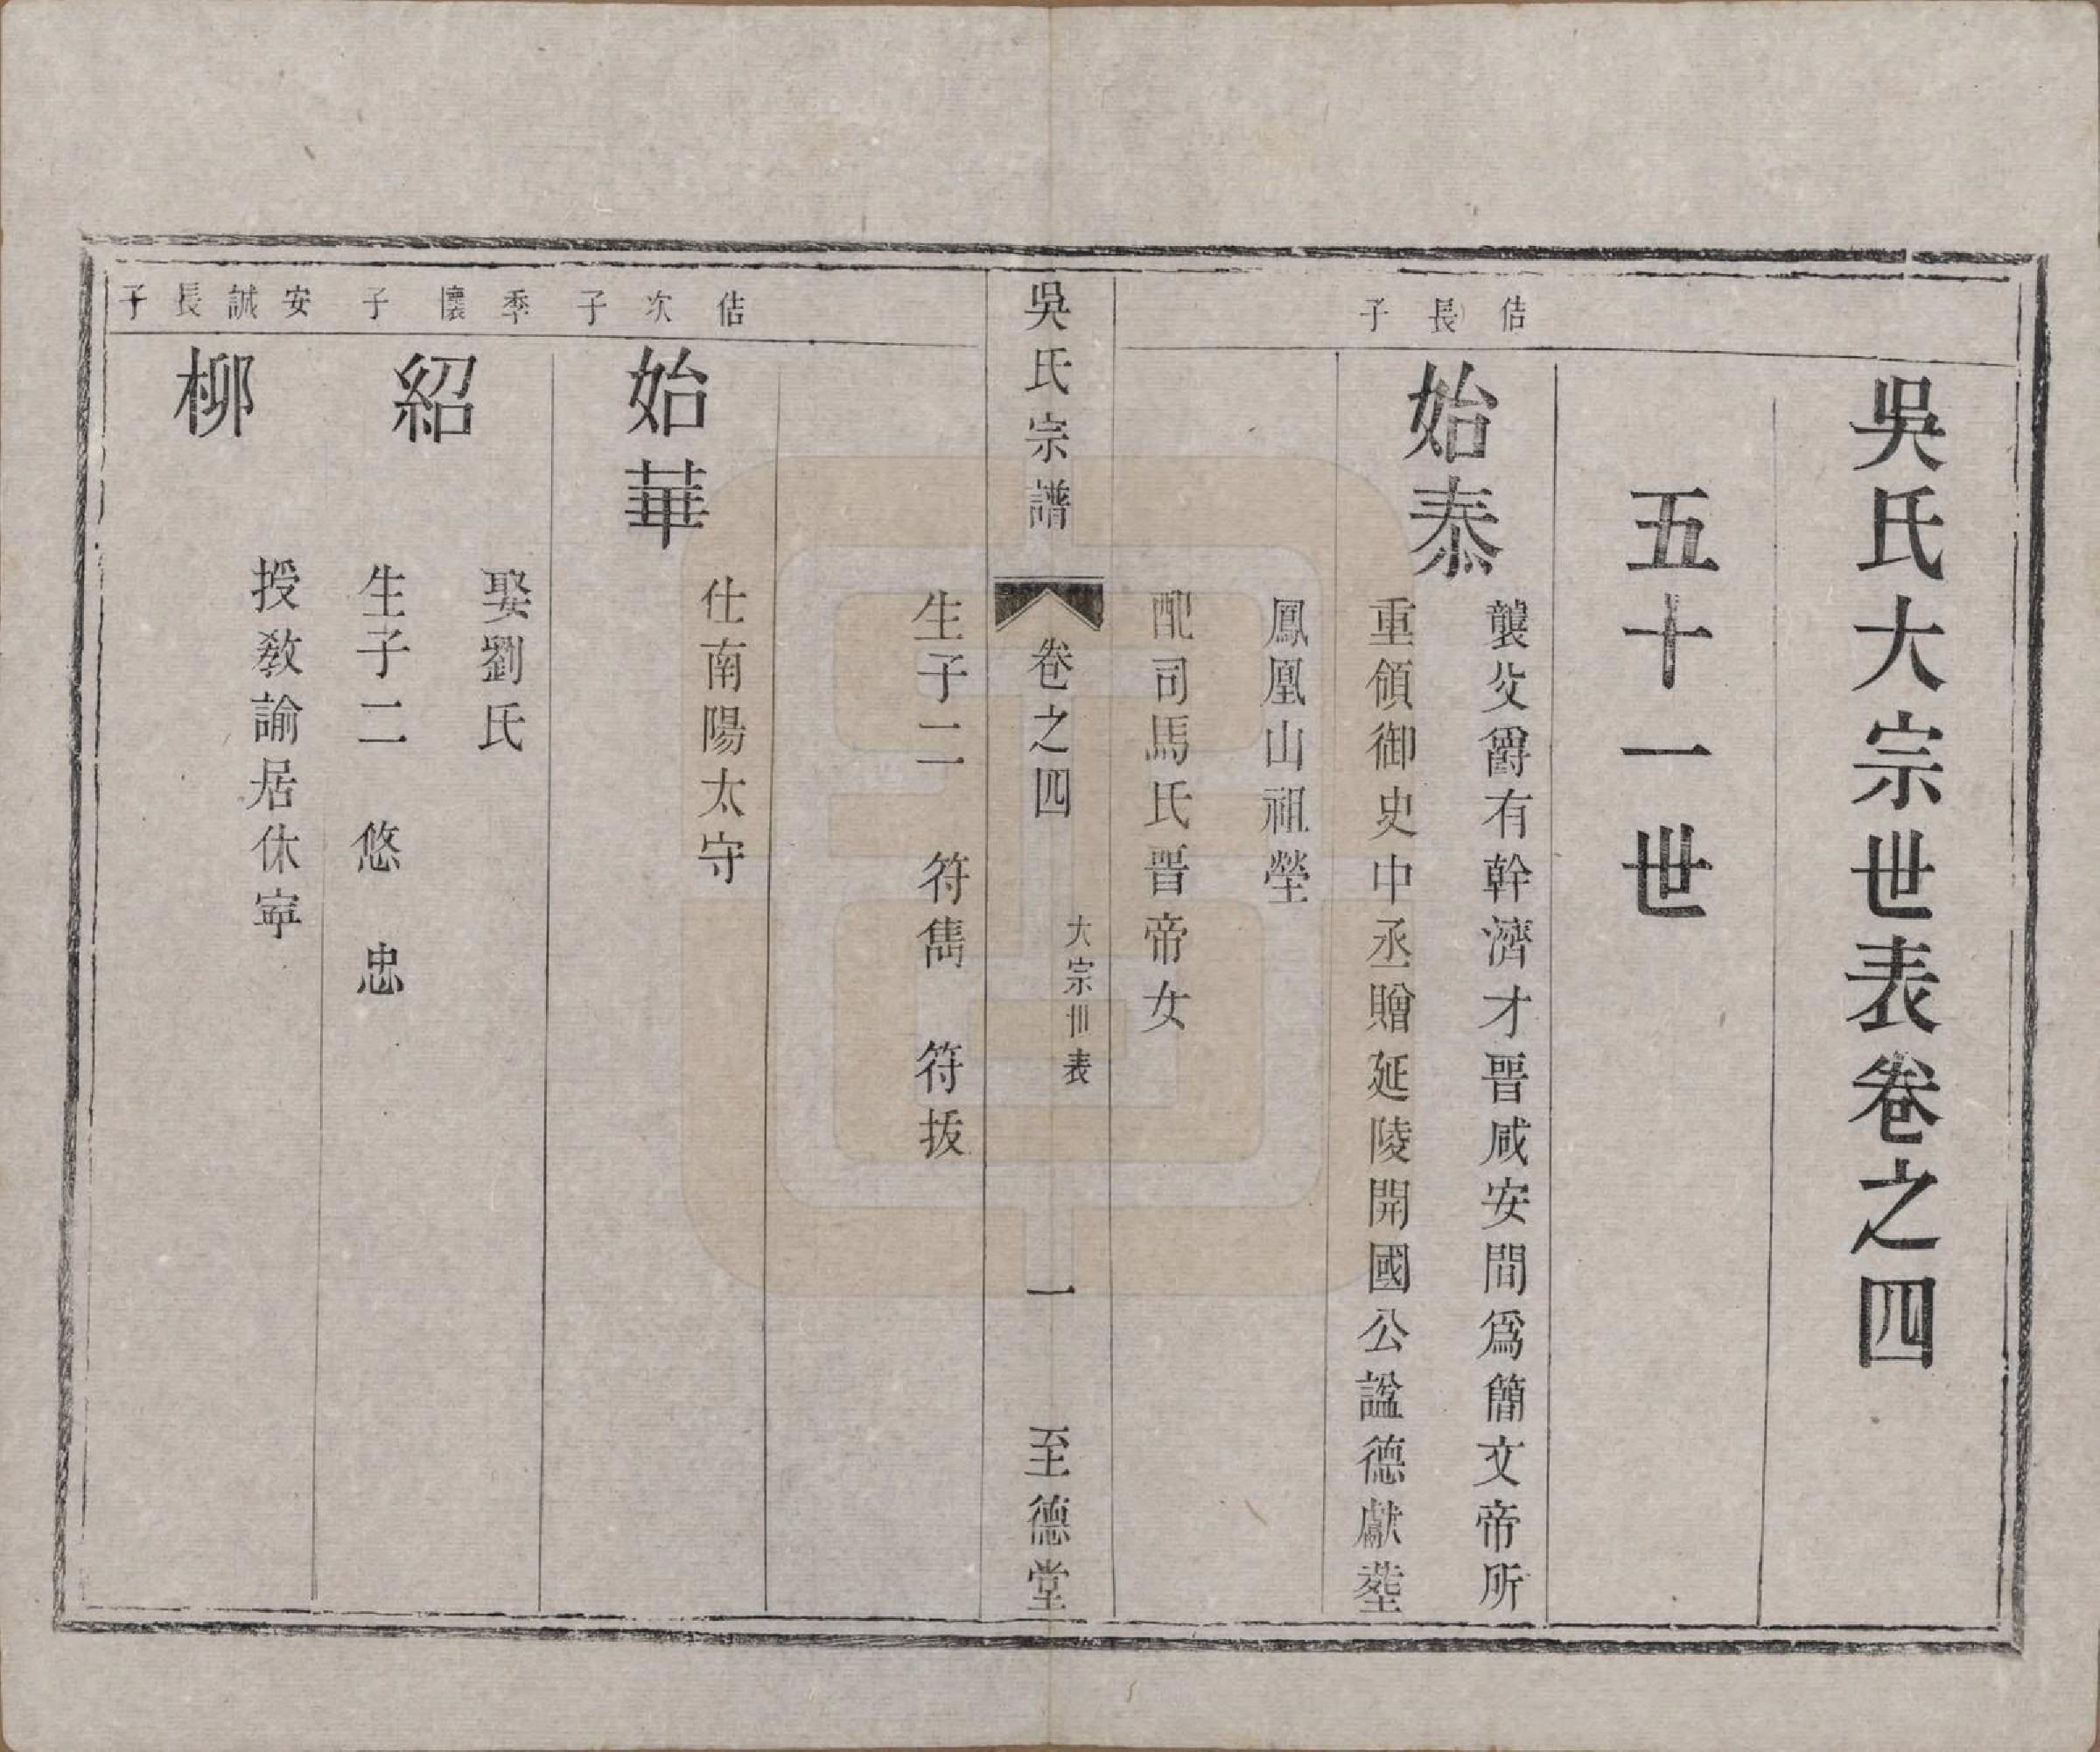 吳氏大宗世表卷之四
五十一世
佶長子
始泰
襲父爵有幹濟才晉咸安間爲簡文帝所
重領御史中丞贈延陵開國公諡德獻塟
鳳凰山祖塋
配司馬氏晉帝女
吳氏宗譜
卷之四
大宗世表
一
至德堂
生子二 符雋 符抜
佶次子
始華
仕南陽太守
季懷子
紹
娶劉氏
生子二 悠 忠
安誠長子
柳
授教諭居休寧